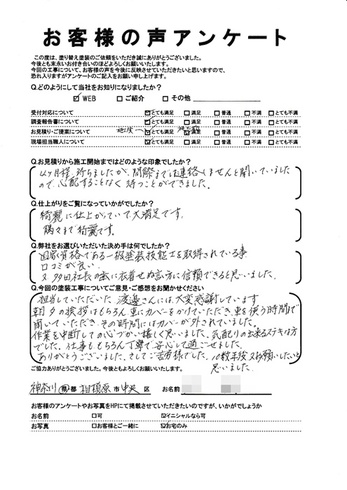 お客様の声アンケート
この度は、塗り替え塗装のご依頼をいただき誠にありがとうございました。
今後とも末永いお付き合いのほどよろしくお願いいたします。
今回の工事について、お客様の声を今後に反映させていただきたいと思いますので、
恐れ入りますがアンケートのご記入をお願い申し上げます。
Q.どのようにして当社をお知りになりましたか?
☑WEB □ご紹介 □その他
受付対応について ☑とても満足 □満足 □普通 □不満 □とても不満
調査報告書について ☑とても満足 □満足 □普通 □不満 □とても不満
お見積り・ご提案について □満足 □普通 □不満 □とても不満
現場担当職人について ☑とても満足 □満足 □普通 □不満 □とても不満
Q.お見積りから施工開始まではどのような印象でしたか?
待ちましたが、間際まで連絡しませんと聞いていました
ので、心配することなく待つことができました。
Q.仕上がりをご覧になっていかがでしたか?
綺麗に仕上がっていて大満足です。
隅々まで綺麗です。
Q.弊社をお選びいただいた決め手は何でしたか?
国家資格である一級塗装技能士を取得されている事
口コミが良い
社長の 信頼できると思いました。
Q.今回の塗装工事についてご意見・ご感想をお聞かせください
担当していただいた渡邉さんには大変感謝しています
朝夕の挨拶はもちろん、車にカバーをかけていただき、車を使う時間を
聞いていただき、その時間にはカバーが外されていました。
作業を中断しての心づかい嬉しく思いました。気配りの出来る
でした。仕事ももちろん丁寧で安心して過ごせました。
ありがとうございました。そしてご苦労様でした。10数年後又お願いしたいと
思いました。
ご協力ありがとうございました。今後ともよろしくお願いいたします。
神奈川 県 都 相模原 市 中央 区 お名前
お客様のアンケートやお写真をHPにて掲載させていただきたいのですが、いかがでしょうか
お名前 □可 ☑イニシャルなら可
お写真 □お客様とご一緒に ☑お宅のみ